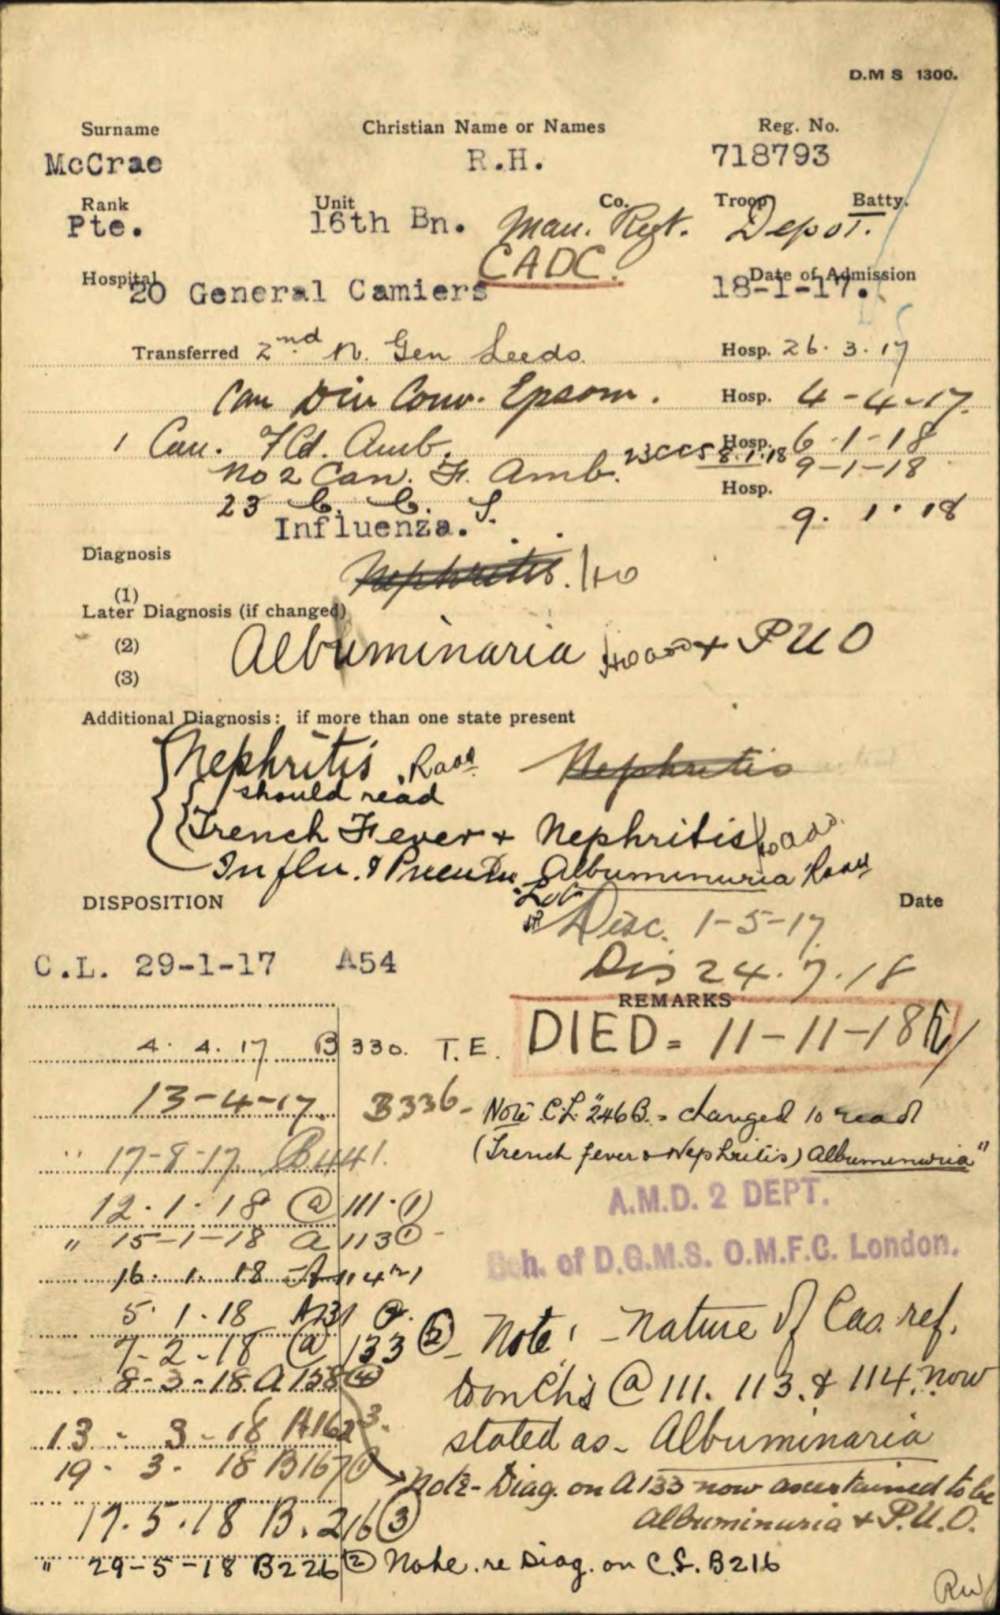 D.M S 1300.
Surname Christian Name or Names Reg. No.
McCrae R.H. 718793
Rank Unit Co. Troop Batty.
Pte. 16th Bn. Man. Regt. Depot.
CADC.
Hospital Date of Admission
20 General Camiers 18-1-17.
Transferred 2nd N. Gen Leeds. Hosp. 26.3.17
Can Div Conv. Epsom. Hosp. 4-4-17.
1 Can. Fld. Amb. Hosp. 6-1-18
No 2 Can. F. Amb. 23CCS 8.1.18 9-1-18
Hosp.
23 C. C. S. 9.1.18
Influenza.
Diagnosis
Nephritis.
(1)
Later Diagnosis (if changed)
(2) Albuminaria + P U O
(3)
Additional Diagnosis: if more than one state present
Nephritis Nephritis
should read
Trench Fever + Nephritis
Influ. & Albumenuria
DISPOSITION Date
Disc. 1-5-17
C.L. 29-1-17 A54
Dis 24.7.18
REMARKS
DIED = 11-11-18
4.4.17 B 330. T.E.
13-4-17. B336-
Note C.L. 246B. = changed to read
(Trench fever & Nephritis) Albumenuria"
" 17-8-17 B441.
A.M.D. 2 DEPT.
12.1.18 @ 111.(1)
" 15-1-18 A 113①-
of D.G.M.S. O.M.F.C. London.
16.1.18 A 114
5.1.18 A131
7-2-18 @ 133 ②
Note: - Nature of Cas. ref.
8-3-18 A158④
to on Ch's @ 111. 113. & 114. now
13-3-18 A162 3.
stated as - Albuminaria
19-3-18 B167①
Note - Diag. on A133 now ascertained to be
albuminuria + P.U.O.
17.5.18 B.216③
" 29-5-18 B226② Note. re Diag. on C.L. B216
RW